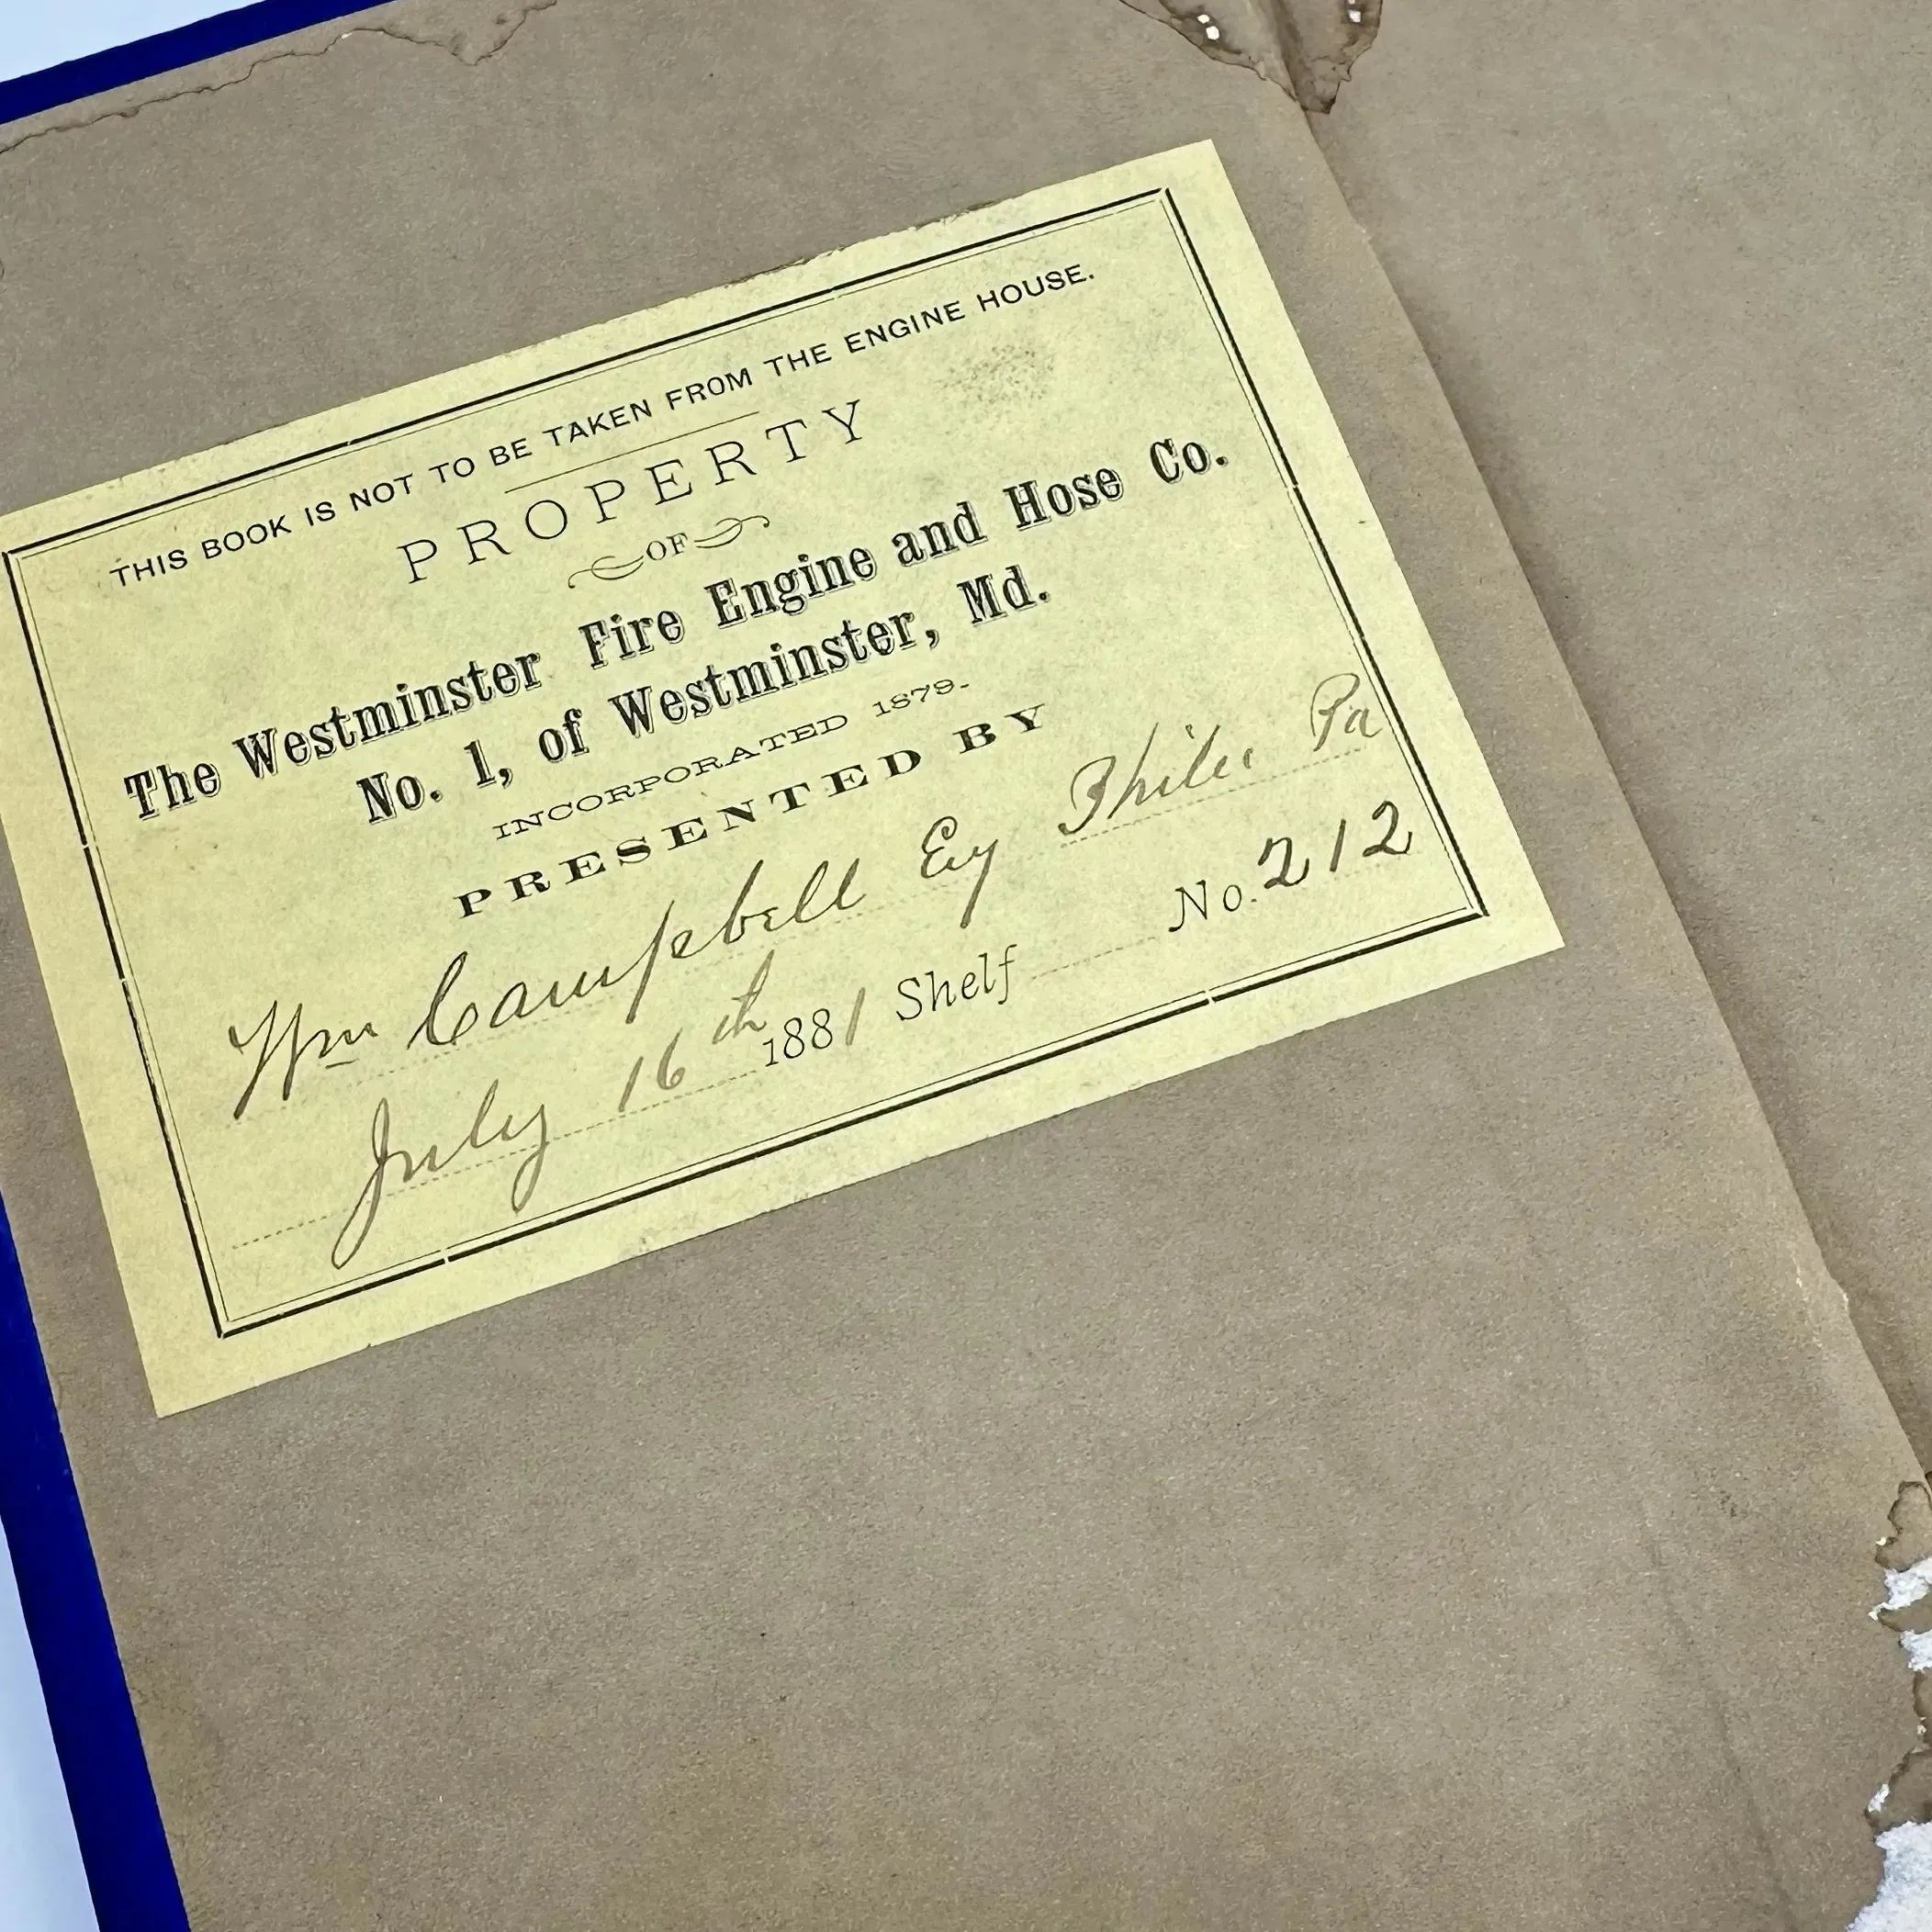 THIS BOOK IS NOT TO BE TAKEN FROM THE ENGINE HOUSE.
PROPERTY
OF
The Westminster Fire Engine and Hose Co.
No. 1, of Westminster, Md.
INCORPORATED 1879.
PRESENTED BY
Wm Campbell Esq Phila. Pa
July 16th 1881 Shelf No. 212